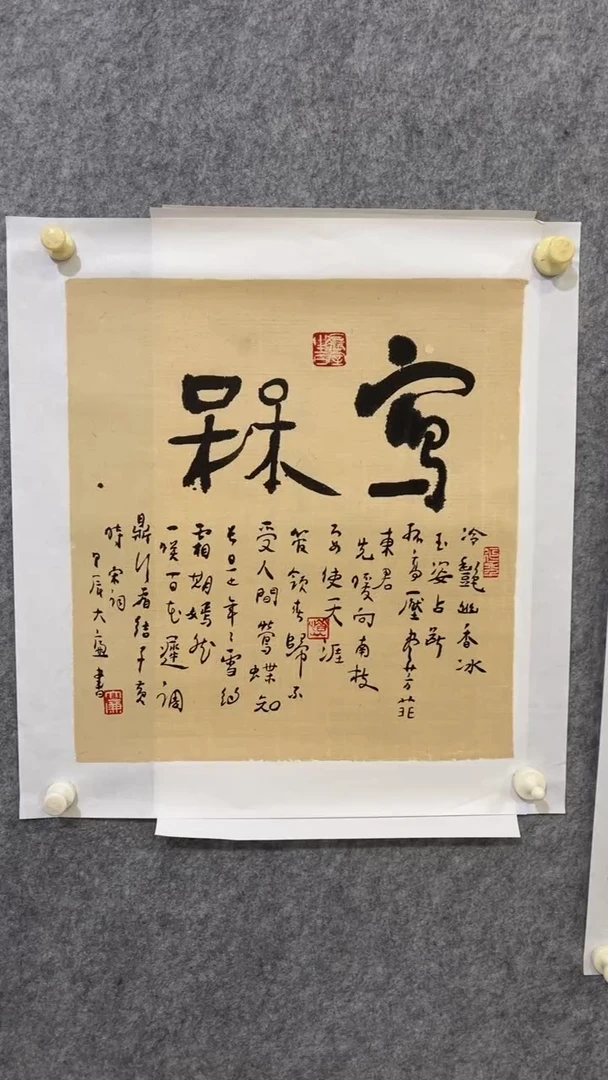 寫槑
冷豔幽香冰
玉姿占斷
孤高壓盡芳菲
東君
先暖向南枝
要使天涯
管領春歸不
受人間鶯蝶知
長是年年雪約
霜期嫣然
一笑百花遲調
鼎行看結子黃
時 宋詞
甲辰大書